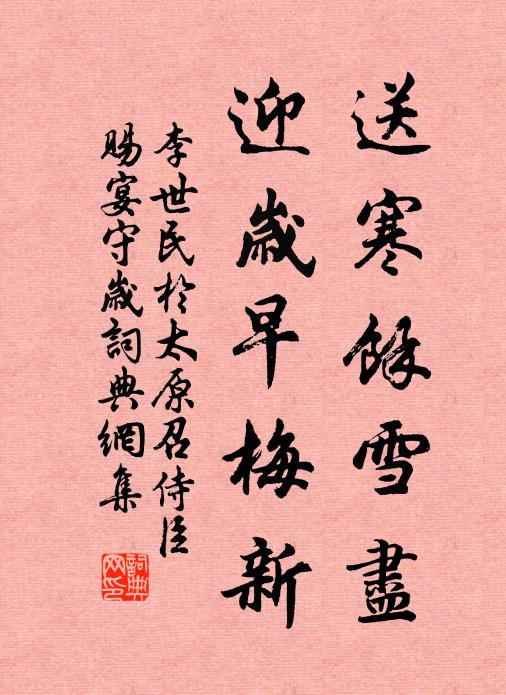 送寒餘雪盡
迎歲早梅新
李世民於太原召侍臣
賜宴守歲詞典網集
詞典網印